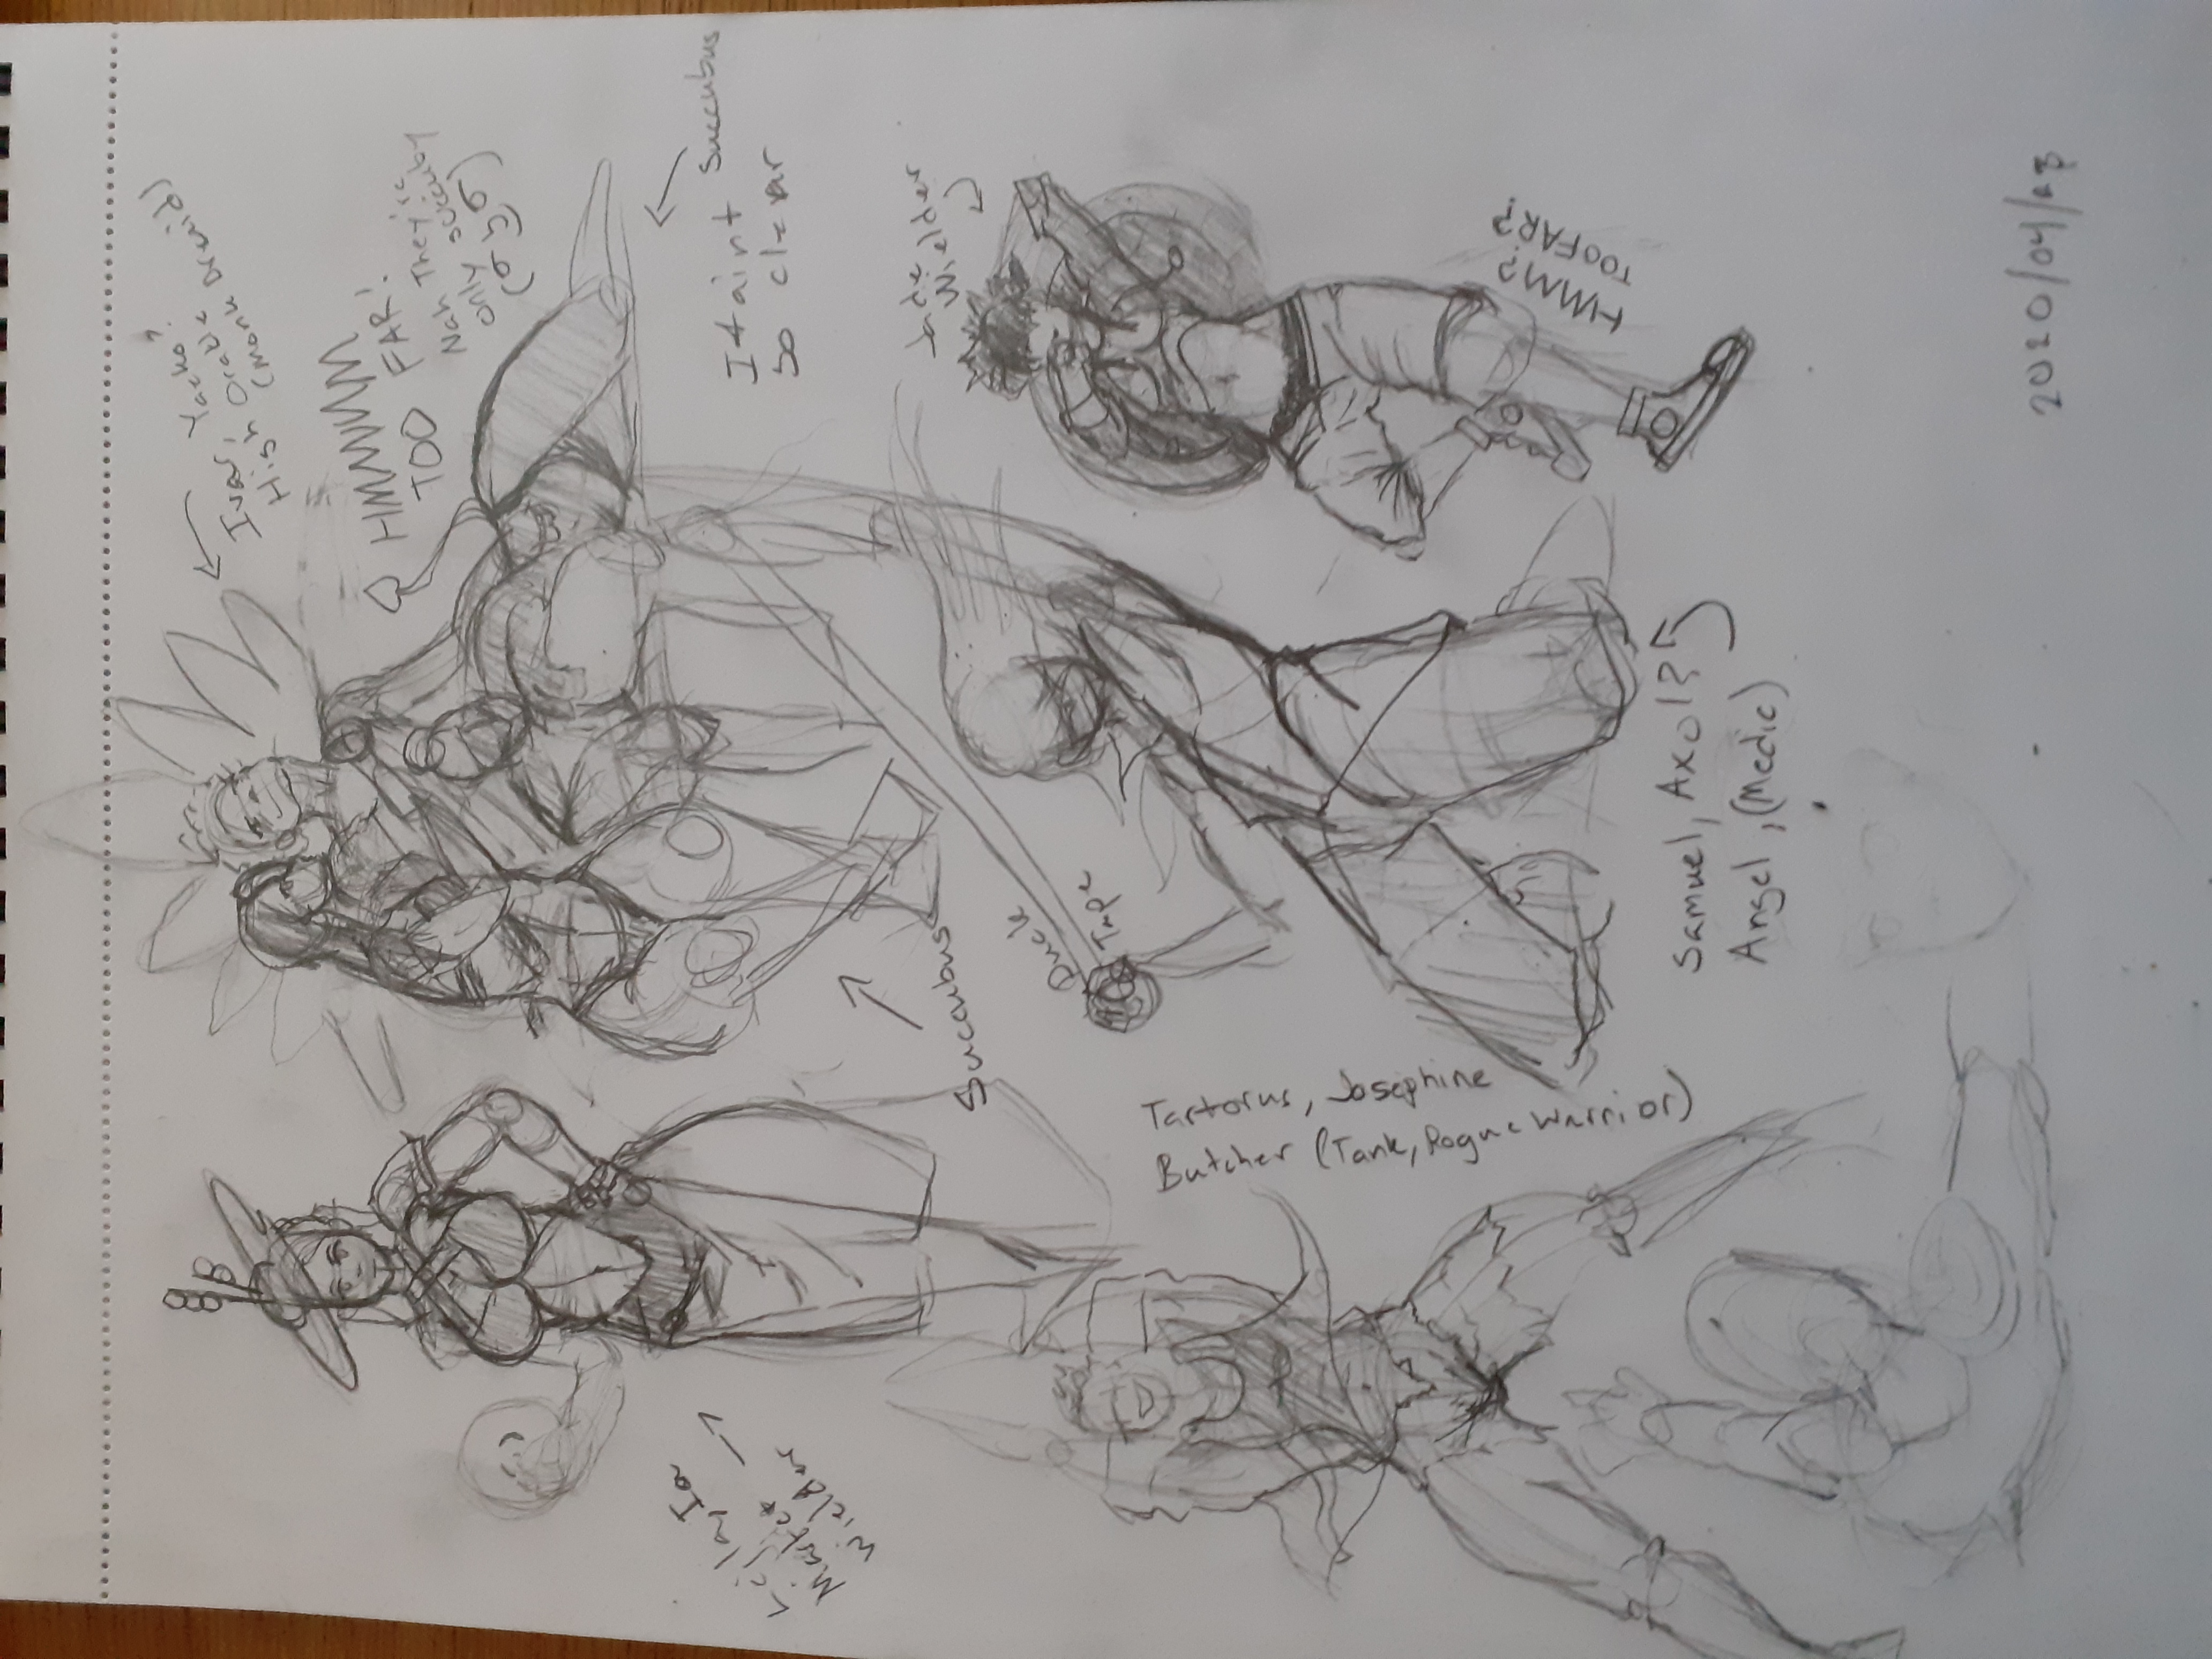 Ivar, Yacko?
High Orable
(monk Druid)
HMMMM
TOO FAR!
Nah They're
only succuby
Succubus
It aint
so clever
Wielder
Succubus
Jade
Wielder
Duck
Tape
Tartorus, Josephine
Butcher (Tank, Rogue Warrior)
HMM?
TOO FAR?
Samuel, Axol?
Angel, (Medic)